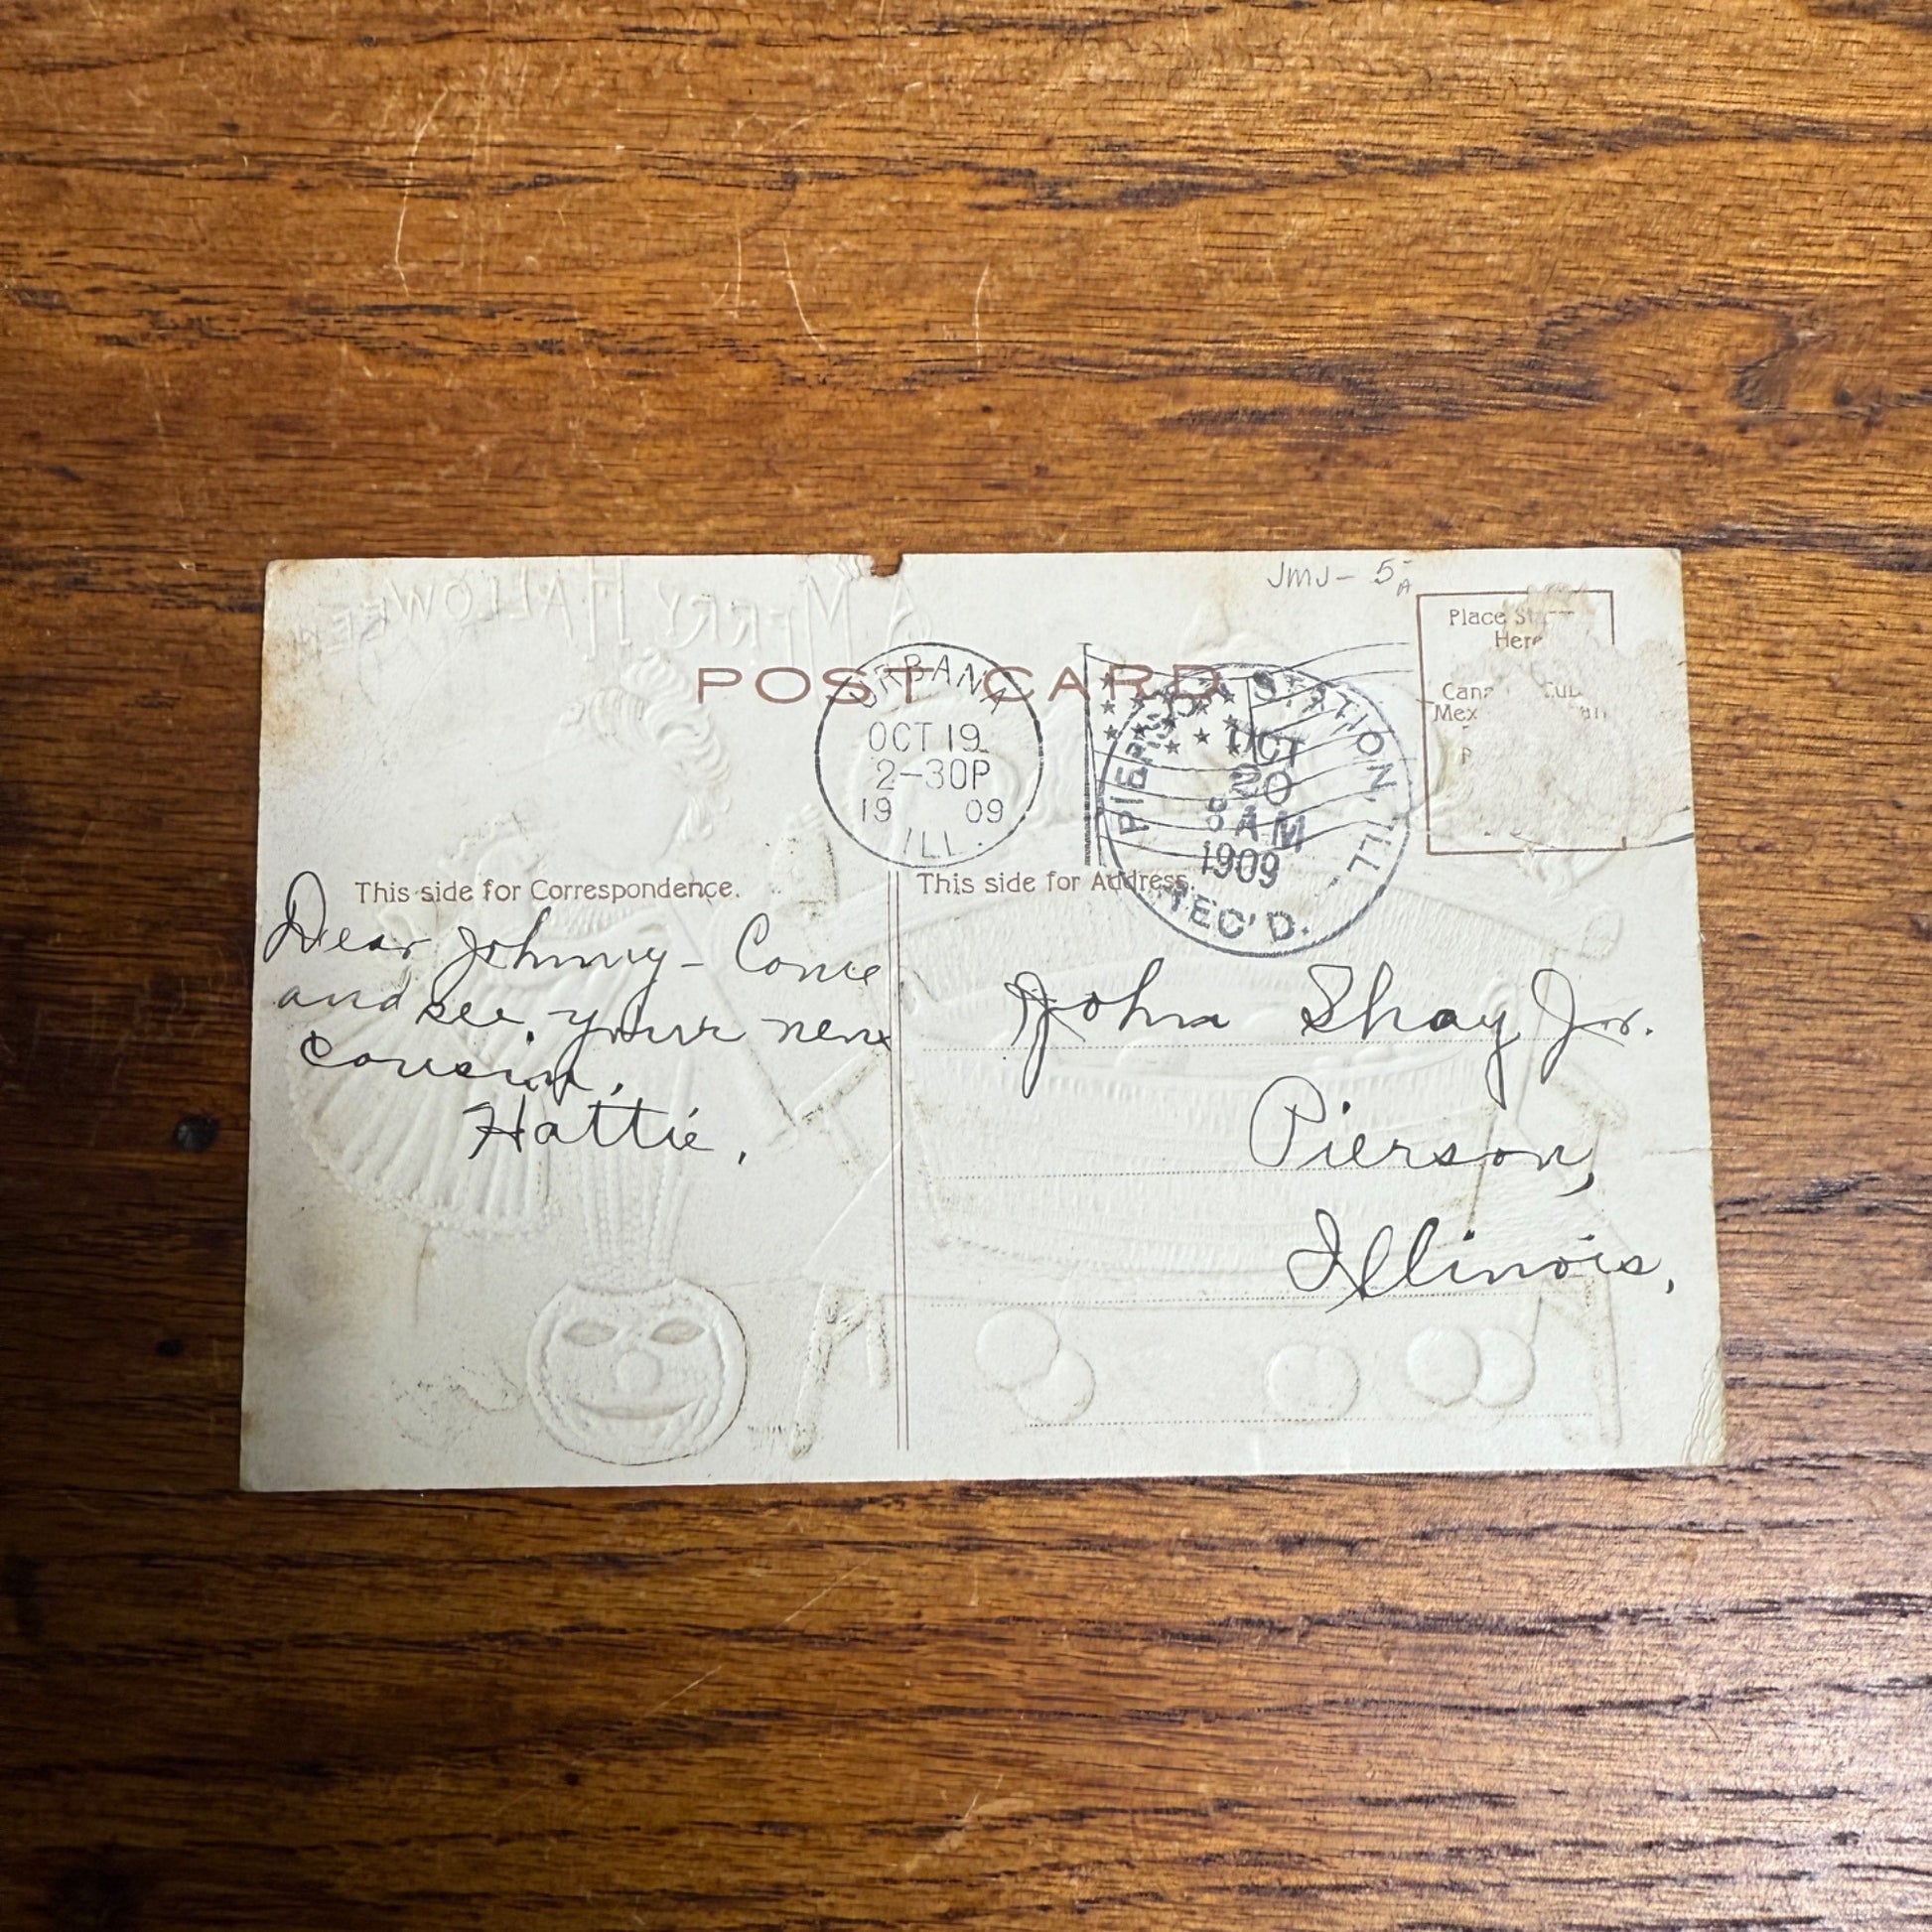 A MERRY HALLOWEEN
JMJ- 5 A
Place
Here
POST CARD
URBANA
OCT 19
2-30P
19 09
ILL.
PIERSON STATION, ILL
OCT
20
8 AM
1909
REC'D.
This side for Correspondence.
This side for Address.
Dear Johnny - Come
and see your new
cousin,
Hattie,
John Shay Jr.
Pierson,
Illinois,